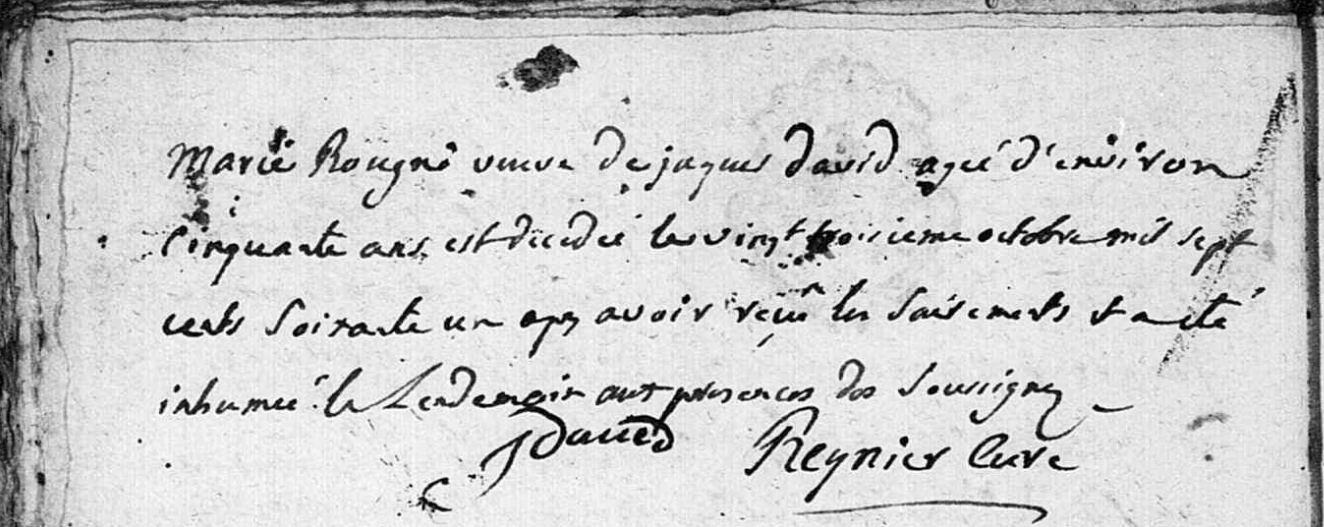 Marie Rougni veuve de jaques david ageé d'environ
cinquante ans est decedeé le vingt troisieme octobre mil sept
cents soixante un apz avoir reçu les sacrements & a eté
inhumeé le Lendemain aux presences des soussignez
Daved
Reynier Cure